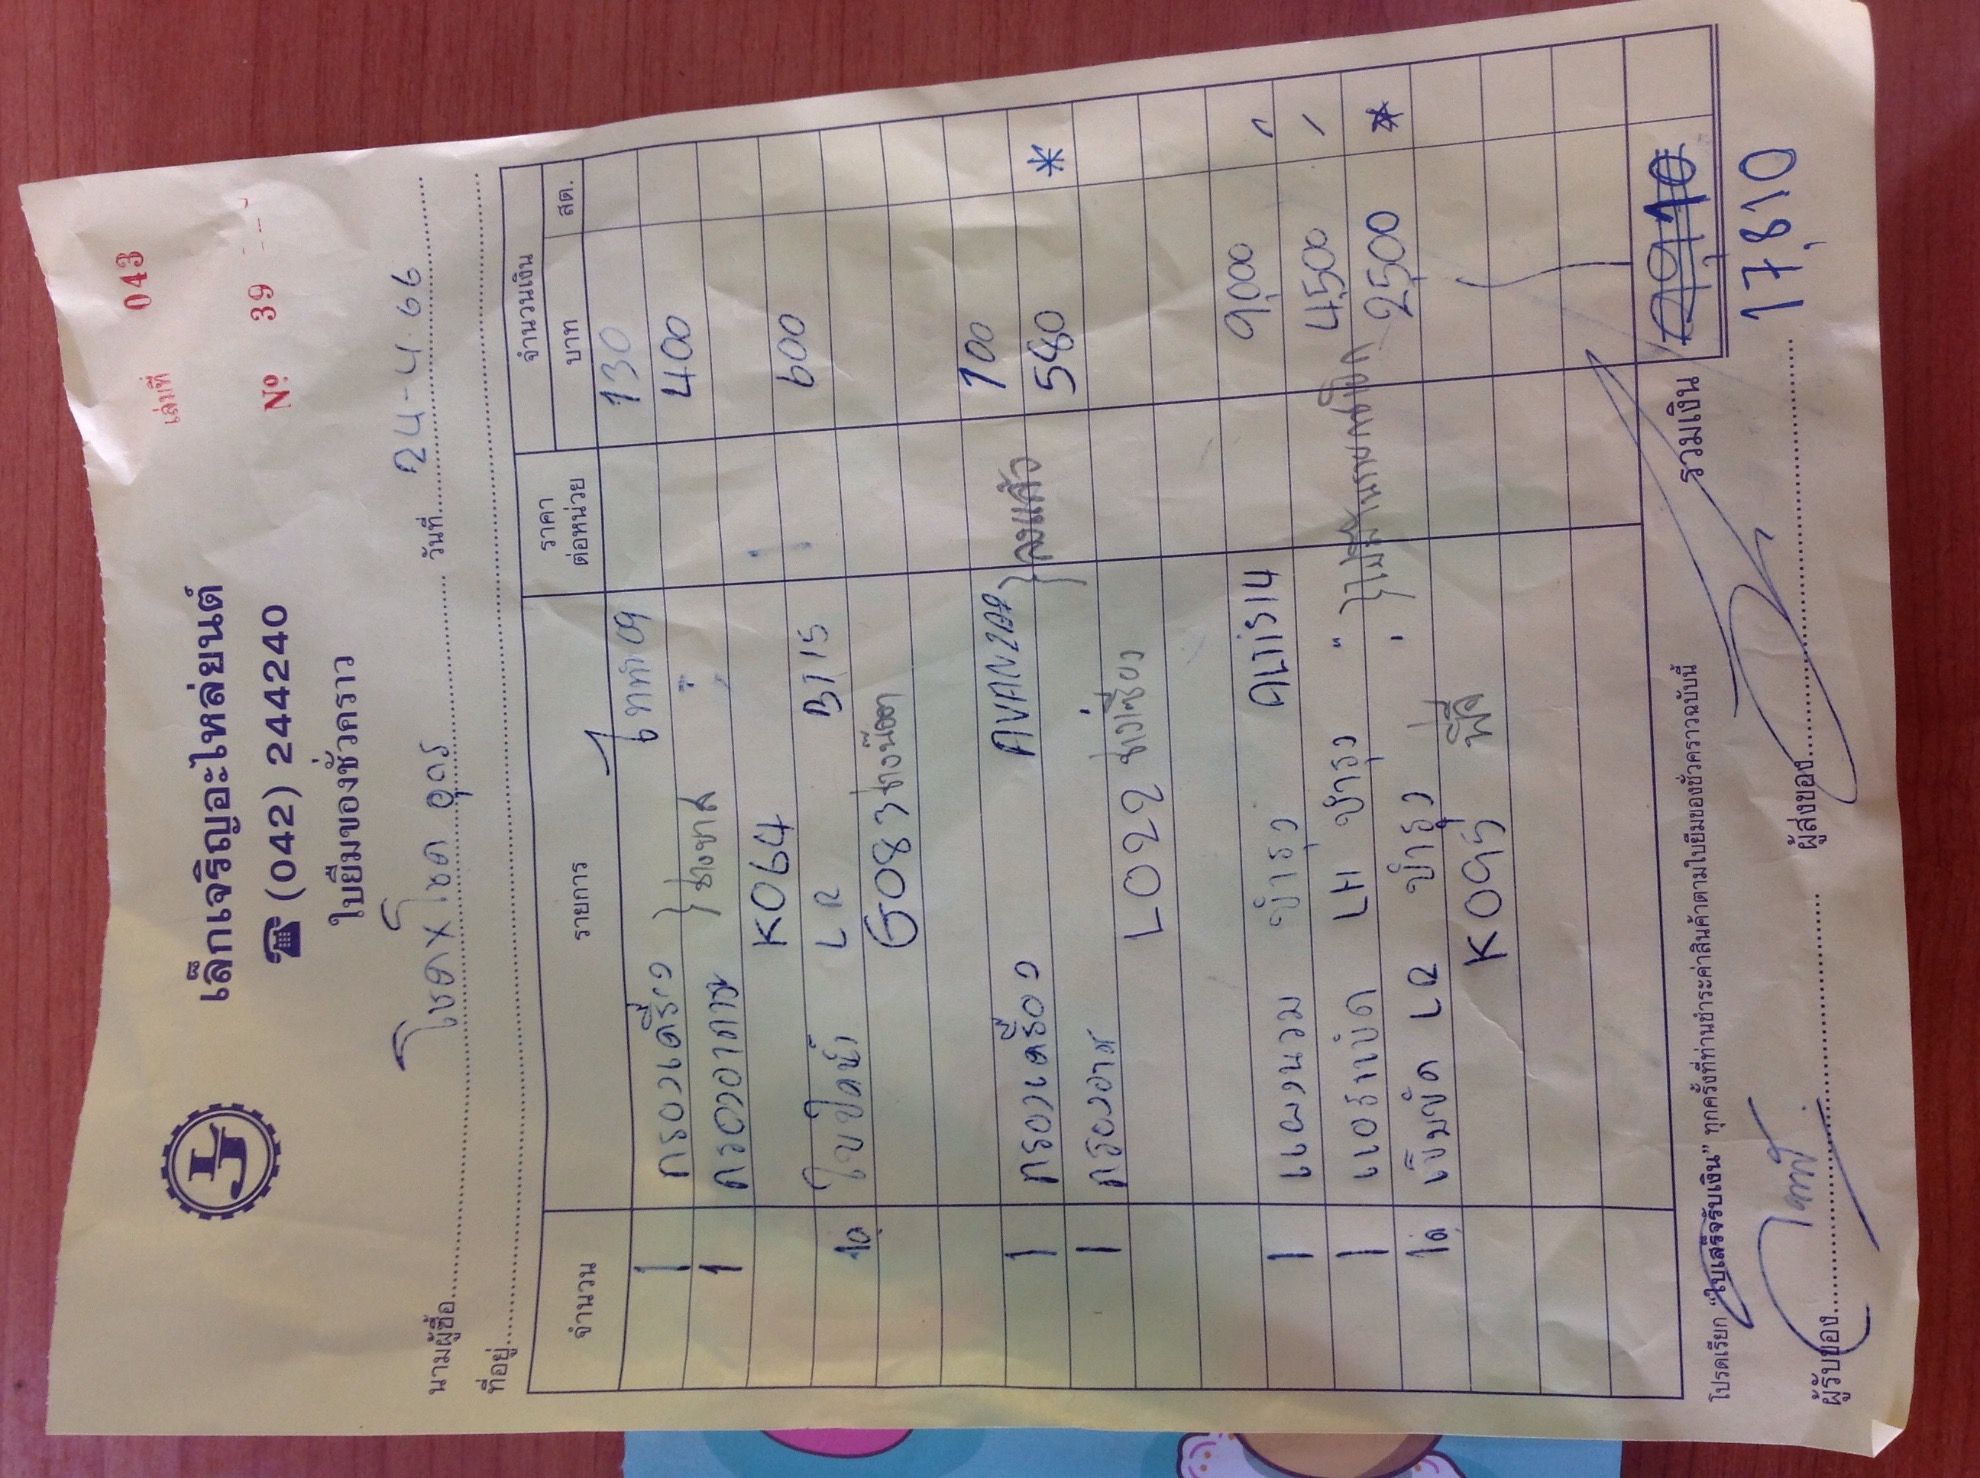 เล่มที่ 043
เล็กเจริญอะไหล่ยนต์
☎ (042) 244240
Nº 39
ใบยืมของชั่วคราว
นามผู้ซื้อ โชค x โชค อุดร วันที่ 24-4-66
ที่อยู่
จำนวน รายการ ราคาต่อหน่วย จำนวนเงิน
บาท สต.
1 กรองเครื่อง 09 130
1 กรองอากาศ 400
K064
1ชุด ใบปัดน้ำ LR BT15 600
G083
1 กรองเครื่อง AVANZA 100
1 กรองอากาศ ลงแล้ว 580 *
L022
1 แผงนวม ชำรุด 9,000
1 LH ชำรุด " 4,500
1ชุด เข็มขัด LR ชำรุด 2,500 *
K095
รวมเงิน
17,810
โปรดเรียก "ใบเสร็จรับเงิน" ทุกครั้งที่ท่านชำระค่าสินค้าตามใบยืมของชั่วคราวฉบับนี้
ผู้รับของ ผู้ส่งของ